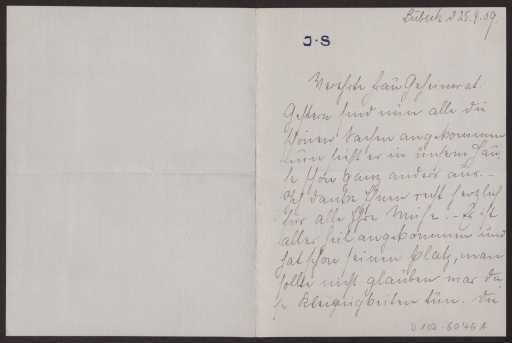 Lübeck d 25.9.09.
J-S
Verehrte Frau Geheimerat.
Gestern sind nun alle die
schönen Sachen angekommen
nun sieht es in unserm Hau
se schon ganz anders aus. –
Ich danke Ihnen recht herzlich
für alle Ihre Mühe! – Es ist
alles heil angekommen und
hat schon seinen Platz, man
sollte nicht glauben was die
se Kleinigkeiten tun. Die